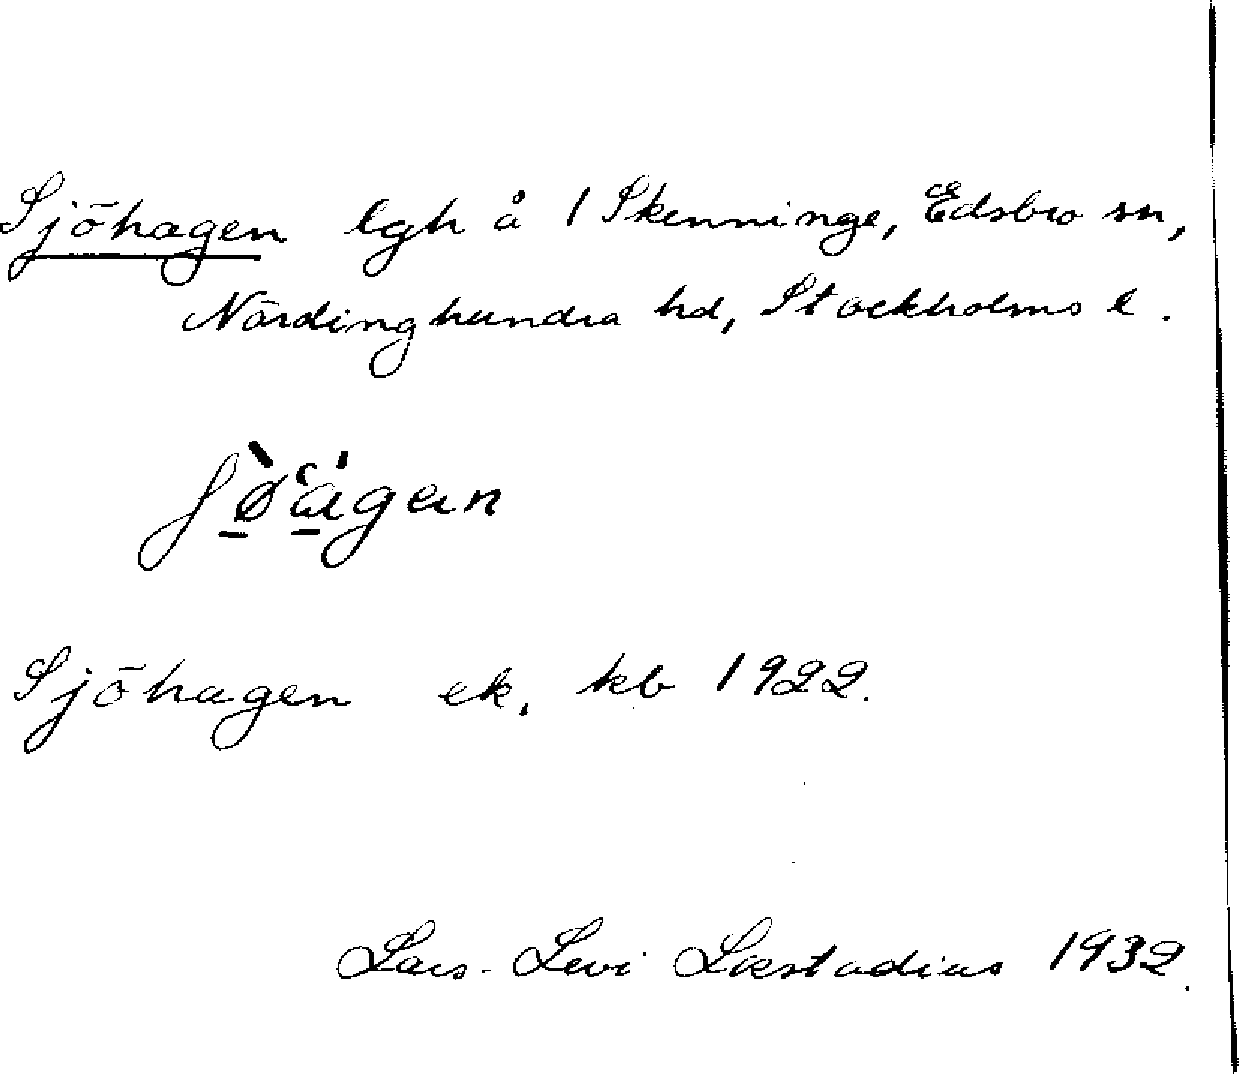 Sjöhagen lgh å 1 Skenninge, Edsbro sn,
Närdinghundra hd, Stockholms l.
Sjöhagen ek. kb 1922.
Lars-Levi Læstadius 1932.